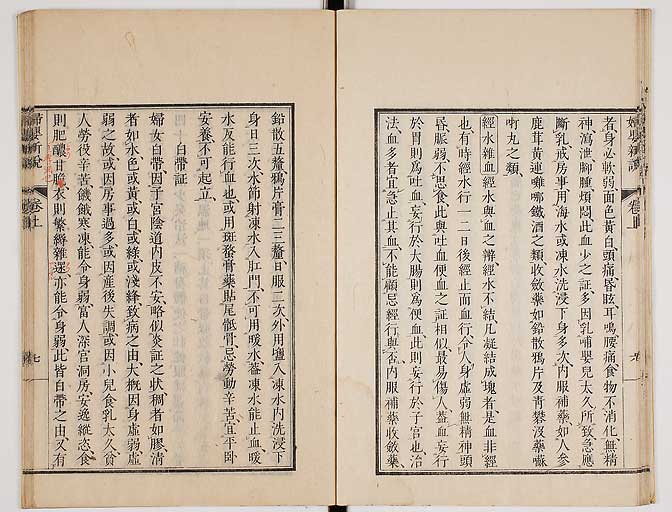 婦嬰新說
卷上
者身必軟弱面色黃白頭痛昏眩耳鳴腰痛食物不消化無精
神瀉泄腳腫煩悶此血少之証多因乳哺嬰兒太久所致急應
斷乳戒房事用海水或凍水洗浸下身多次內服補藥如人參
鹿茸黃連嘰哪鐵酒之類收斂藥如鉛散鴉片及青礬沒藥嚹
啊丸之類
經水雜血經水與血之辯經水不結凡凝結成塊者是血非經
也有時經水行一二日後經止而血行令人身虛弱無精神頭
昏脈弱不思食此與吐血便血之証相似最易傷人蓋血妄行
於胃則爲吐血妄行於大腸則爲便血此則妄行於子宮也治
法血多者宜急止其血不能顧忌經行與否內服補藥收斂藥
鉛散五釐鴉片膏二三釐日服二次外用壜入凍水內洗浸下
身日三次水節射凍水入肛門不可用暖水蓋凍水能止血暖
水反能行血也或用斑蝥膏藥貼尾骶骨忌勞動辛苦宜平臥
安養不可起立
四十白帶証
婦女白帶因子宮陰道內皮不安略似炎証之狀稠者如膠清
者如水色或黃或白或綠或淺綠致病之由大概因身虛弱虛
弱之故或因房事過多或因產後失調或因小兒食乳太久貧
人勞役辛苦饑餓寒凍能令身弱富人深宮洞房安逸縱恣食
則肥醲甘脆衣則繁縟雜遝亦能令身弱此皆白帶之由又有
婦嬰新說
卷上
七